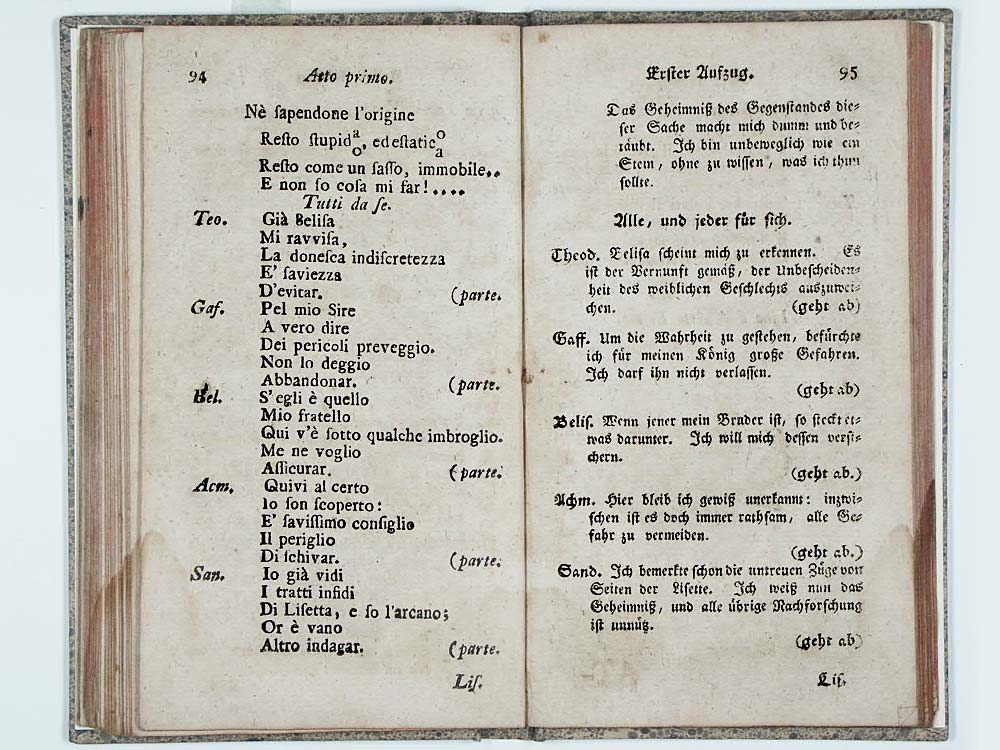 94 Atto primo.
Nè ſapendone l'origine
Reſto ſtupid a/o, ed eſtatic o/a
Reſto come un ſaſſo, immobile..
E non ſo coſa mi far!....
Tutti da ſe.
Teo. Già Beliſa
Mi ravviſa,
La doneſca indiſcretezza
E' ſaviezza
D'evitar. (parte.
Gaf. Pel mio Sire
A vero dire
Dei pericoli preveggio.
Non lo deggio
Abbandonar. (parte.
Bel. S'egli è quello
Mio fratello
Qui v'è ſotto qualche imbroglio.
Me ne voglio
Aſſicurar. (parte.
Acm. Quivi al certo
Io ſon ſcoperto:
E' ſaviſſimo conſiglio
Il periglio
Di ſchivar. (parte.
San. Io già vidi
I tratti infidi
Di Liſetta, e ſo l'arcano;
Or è vano
Altro indagar. (parte.
Liſ.
Erſter Aufzug. 95
Das Geheimniß des Gegenſtandes die-
ſer Sache macht mich dumm und be-
täubt. Ich bin unbeweglich wie ein
Stein, ohne zu wiſſen, was ich thun
ſollte.
Alle, und jeder für ſich.
Theod. Beliſa ſcheint mich zu erkennen. Es
iſt der Vernunft gemäß, der Unbeſcheiden-
heit des weiblichen Geſchlechts auszuwei-
chen. (geht ab)
Gaff. Um die Wahrheit zu geſtehen, befürchte
ich für meinen König große Gefahren.
Ich darf ihn nicht verlaſſen.
(geht ab)
Beliſ. Wenn jener mein Bruder iſt, ſo ſteckt et-
was darunter. Ich will mich deſſen verſi-
chern.
(geht ab.)
Achm. Hier bleib ich gewiß unerkannt: inzwi-
ſchen iſt es doch immer rathſam, alle Ge-
fahr zu vermeiden.
(geht ab.)
Sand. Ich bemerkte ſchon die untreuen Züge von
Seiten der Liſette. Ich weiß nun das
Geheimniß, und alle übrige Nachforſchung
iſt unnütz.
(geht ab)
Liſ.